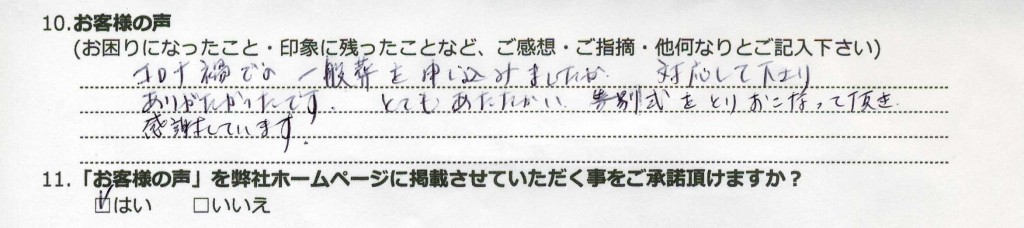 10.お客様の声
(お困りになったこと・印象に残ったことなど、ご感想・ご指摘・他何なりとご記入下さい)
コロナ禍での一般葬を申し込みましたが、対応して下さり
ありがたかったです。とてもあたたかい告別式をとりおこなって頂き
感謝しています。
11.「お客様の声」を弊社ホームページに掲載させていただく事をご承諾頂けますか？
☑はい □いいえ